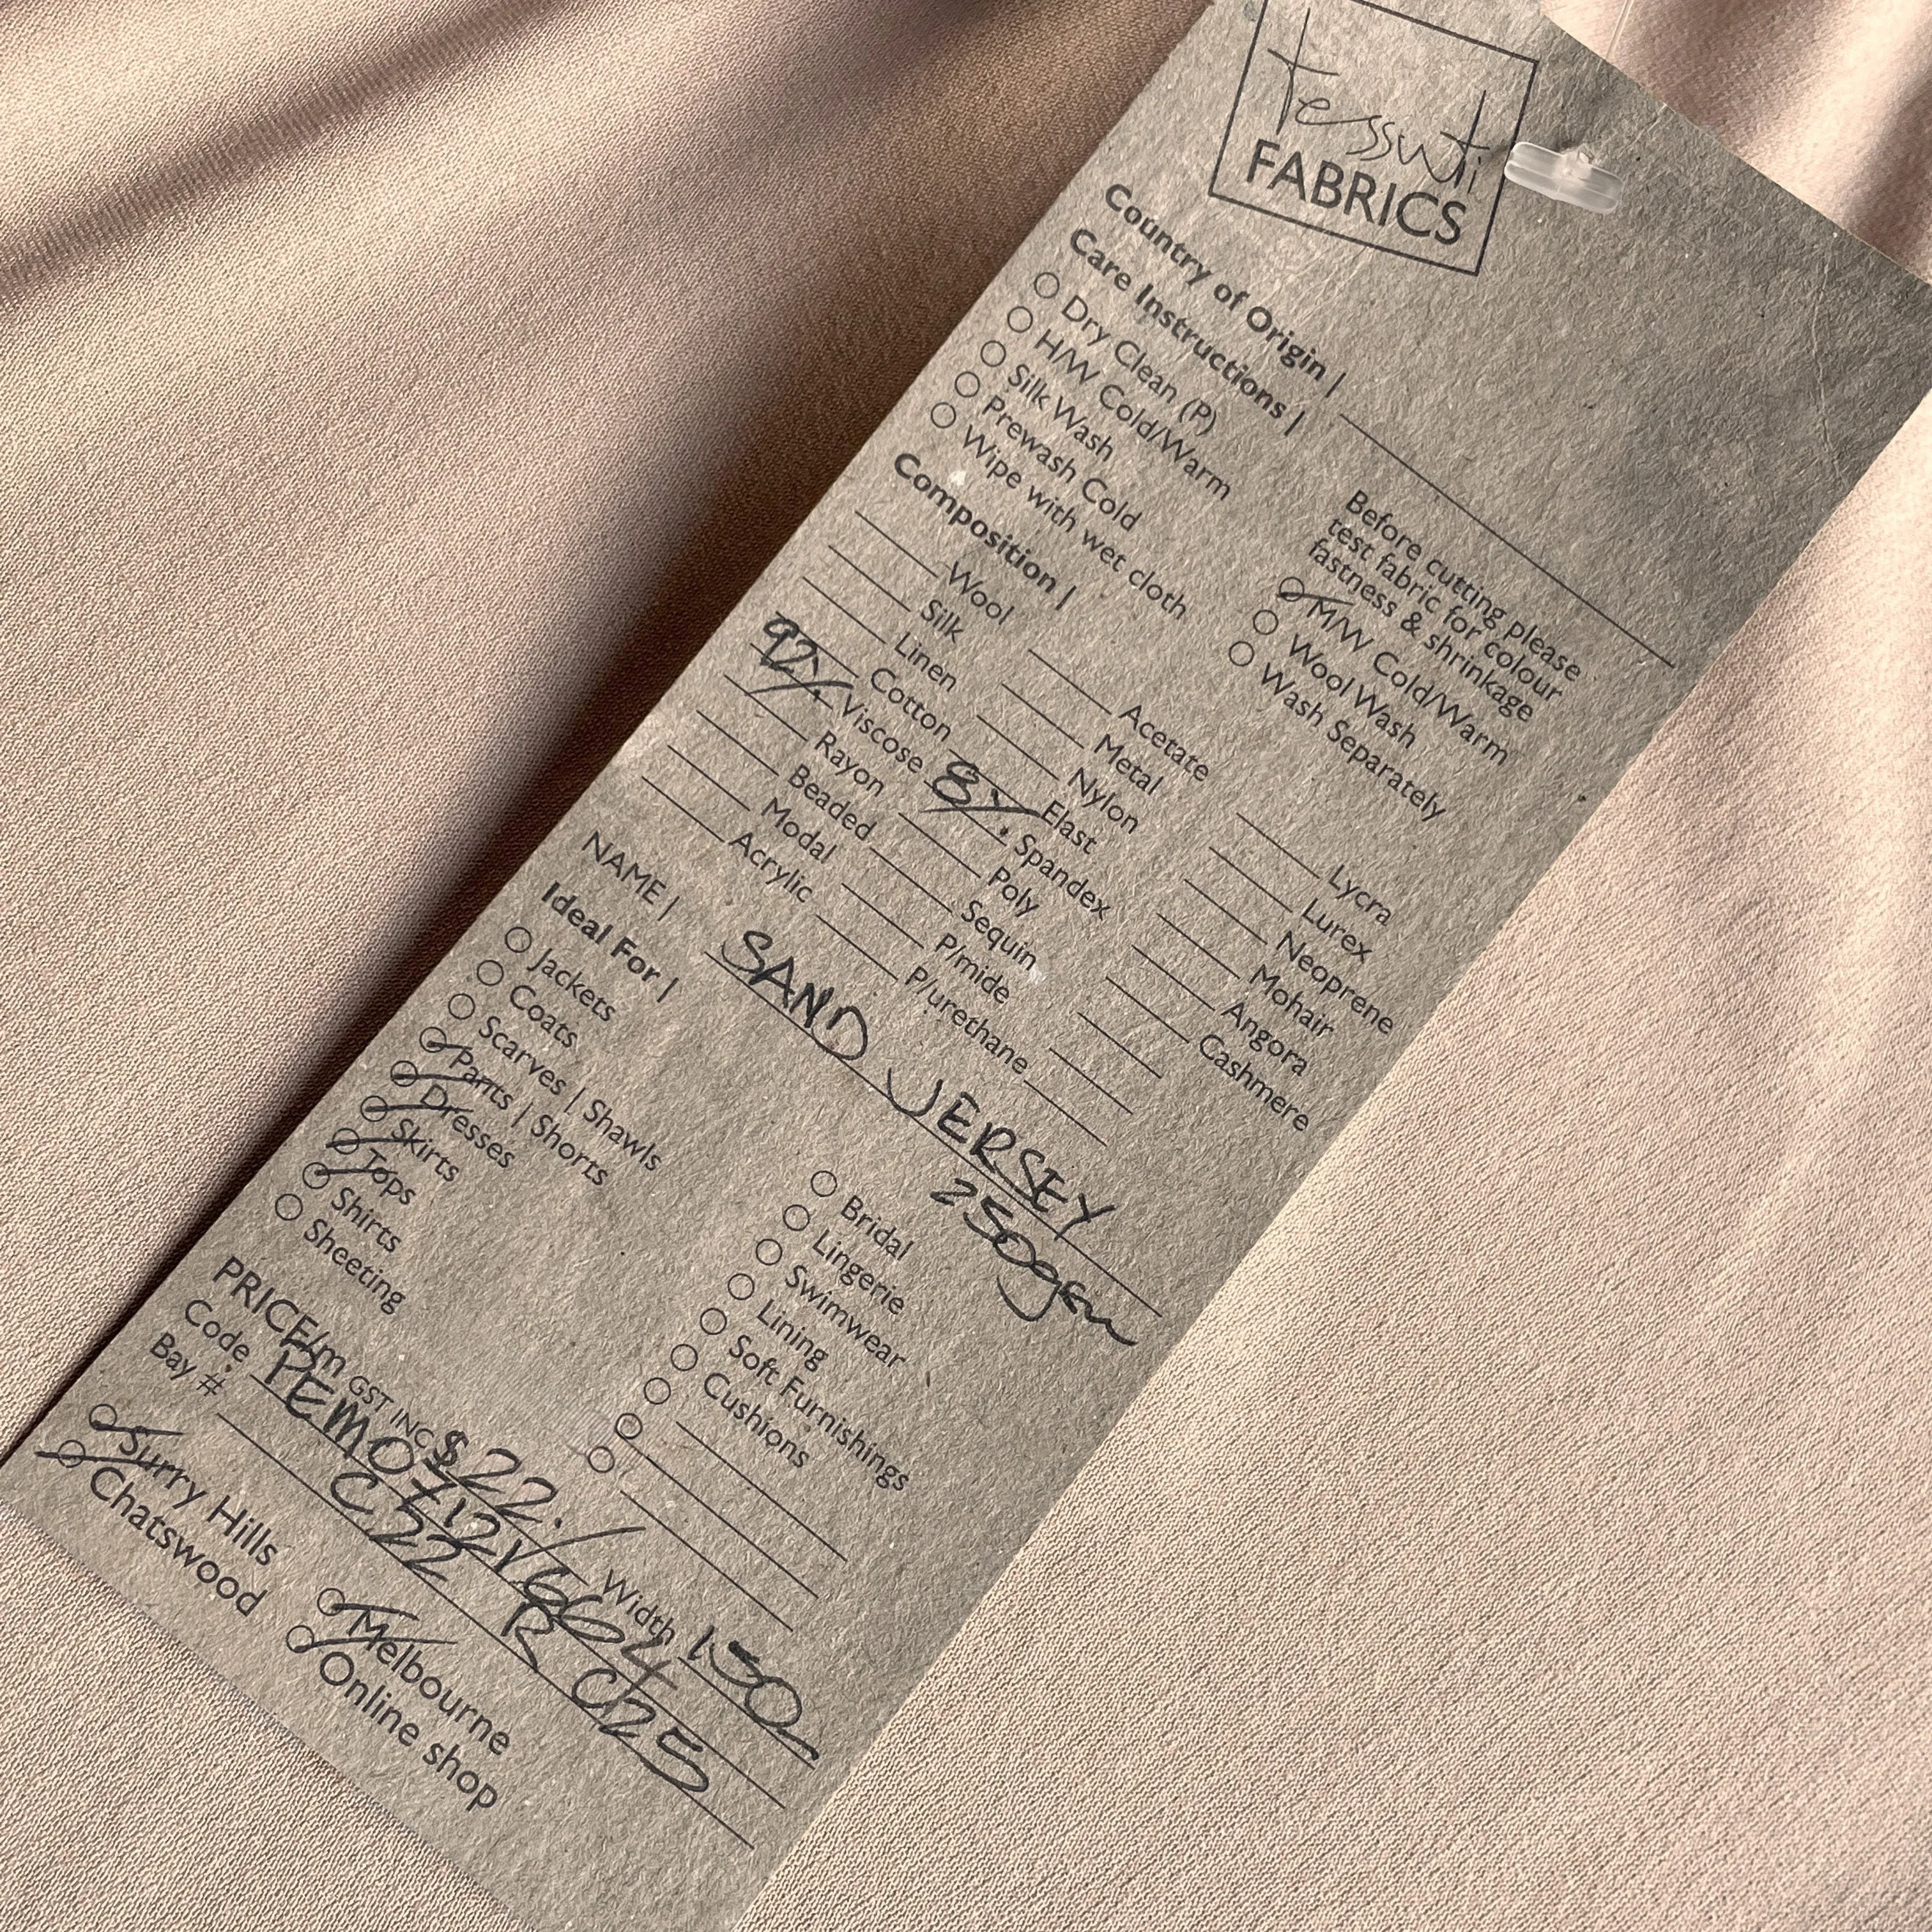 tessuti
FABRICS
Country of Origin |
Care Instructions |
Dry Clean (P)
H/W Cold/Warm
Silk Wash
Prewash Cold
Wipe with wet cloth
Before cutting please
test fabric for colour
fastness & shrinkage
M/W Cold/Warm
Wool Wash
Wash Separately
Composition |
Wool
Silk
Linen
Cotton
92% Viscose
Rayon
Beaded
Modal
Acrylic
Acetate
Metal
Nylon
8% Elast
Spandex
Poly
Sequin
P/mide
P/urethane
Lycra
Lurex
Neoprene
Mohair
Angora
Cashmere
NAME | SAND JERSEY
250gsm
Ideal For |
Jackets
Coats
Scarves | Shawls
Pants | Shorts
Dresses
Skirts
Tops
Shirts
Sheeting
Bridal
Lingerie
Swimwear
Lining
Soft Furnishings
Cushions
PRICE/m GST INC $22. Width 150
Code PEM0712Y6624
Bay # C22 R C25
Surry Hills
Chatswood
Melbourne
Online shop